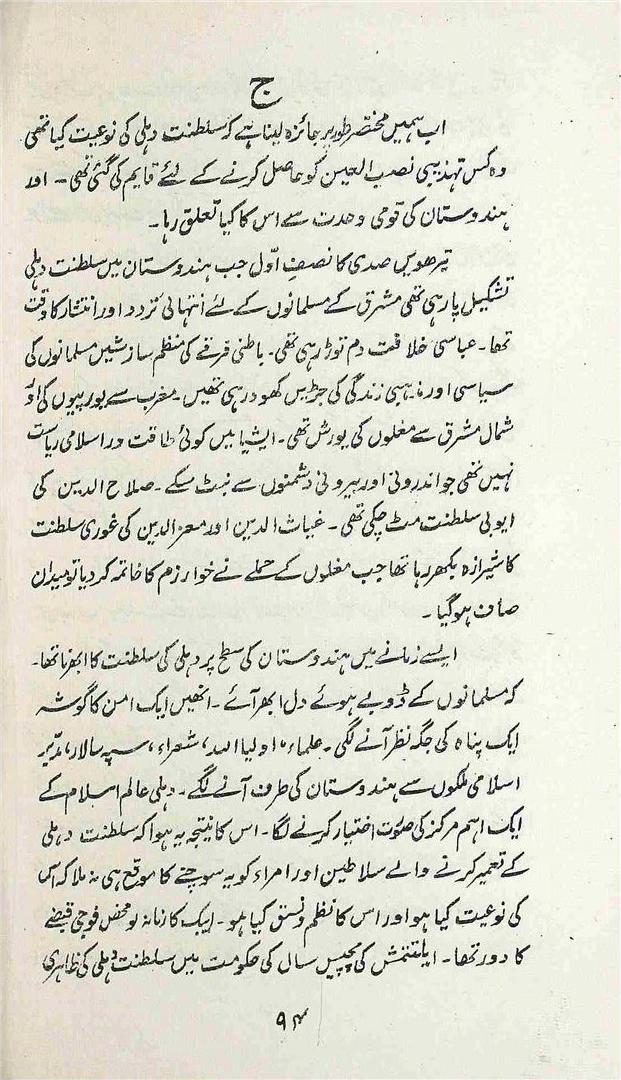 ج
اب ہمیں مختصر طور پر جائزہ لینا ہے کہ سلطنت دہلی کی نوعیت کیا تھی
وہ کس تہذیبی نصب العین کو حاصل کرنے کے لئے قایم کی گئی تھی ۔ اور
ہندوستان کی قومی وحدت سے اس کا کیا تعلق رہا ۔
تیرھویں صدی کا نصف اوّل جب ہندوستان میں سلطنت دہلی
تشکیل پا رہی تھی مشرق کے مسلمانوں کے لئے انتہائی تردد اور انتشار کا وقت
تھا ۔ عباسی خلافت دم توڑ رہی تھی ۔ باطنی فرقے کی منظم سازشیں مسلمانوں کی
سیاسی اور مذہبی زندگی کی جڑیں کھود رہی تھیں ۔ مغرب سے یورپیوں کی اور
شمال مشرق سے مغلوں کی یورش تھی ۔ ایشیا میں کوئی طاقت ور اسلامی ریاست
نہیں تھی جو اندرونی اور بیرونی دشمنوں سے نبٹ سکے ۔ صلاح الدین کی
ایوبی سلطنت مٹ چکی تھی ۔ غیاث الدین اور معز الدین کی غوری سلطنت
کا شیرازہ بکھر رہا تھا جب مغلوں کے حملے نے خوارزم کا خاتمہ کر دیا تو میدان
صاف ہو گیا ۔
ایسے زمانے میں ہندوستان کی سطح پر دہلی کی سلطنت کا ابھرنا تھا ۔
کہ مسلمانوں کے ڈوبے ہوئے دل ابھر آئے ۔ انھیں ایک امن کا گوشہ
ایک پناہ کی جگہ نظر آنے لگی ۔ علماء، اولیا اللہ، شعراء، سپہ سالار، مدبر
اسلامی ملکوں سے ہندوستان کی طرف آنے لگے ۔ دہلی عالم اسلام کے
ایک اہم مرکز کی صورت اختیار کرنے لگا ۔ اس کا نتیجہ یہ ہوا کہ سلطنت دہلی
کے تعمیر کرنے والے سلاطین اور امراء کو یہ سوچنے کا موقع ہی نہ ملا کہ اس
کی نوعیت کیا ہو اور اس کا نظم و نسق کیا ہو ۔ ایبک کا زمانہ تو محض فوجی قبضے
کا دور تھا ۔ ایلتتمش کی پچیس سال کی حکومت میں سلطنت دہلی کی ظاہری
۹۴